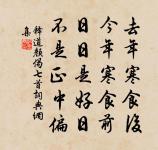 去年寒食後
今年寒食前
日日是好日
不是正中偏
釋道顏偈七首詞典網
集